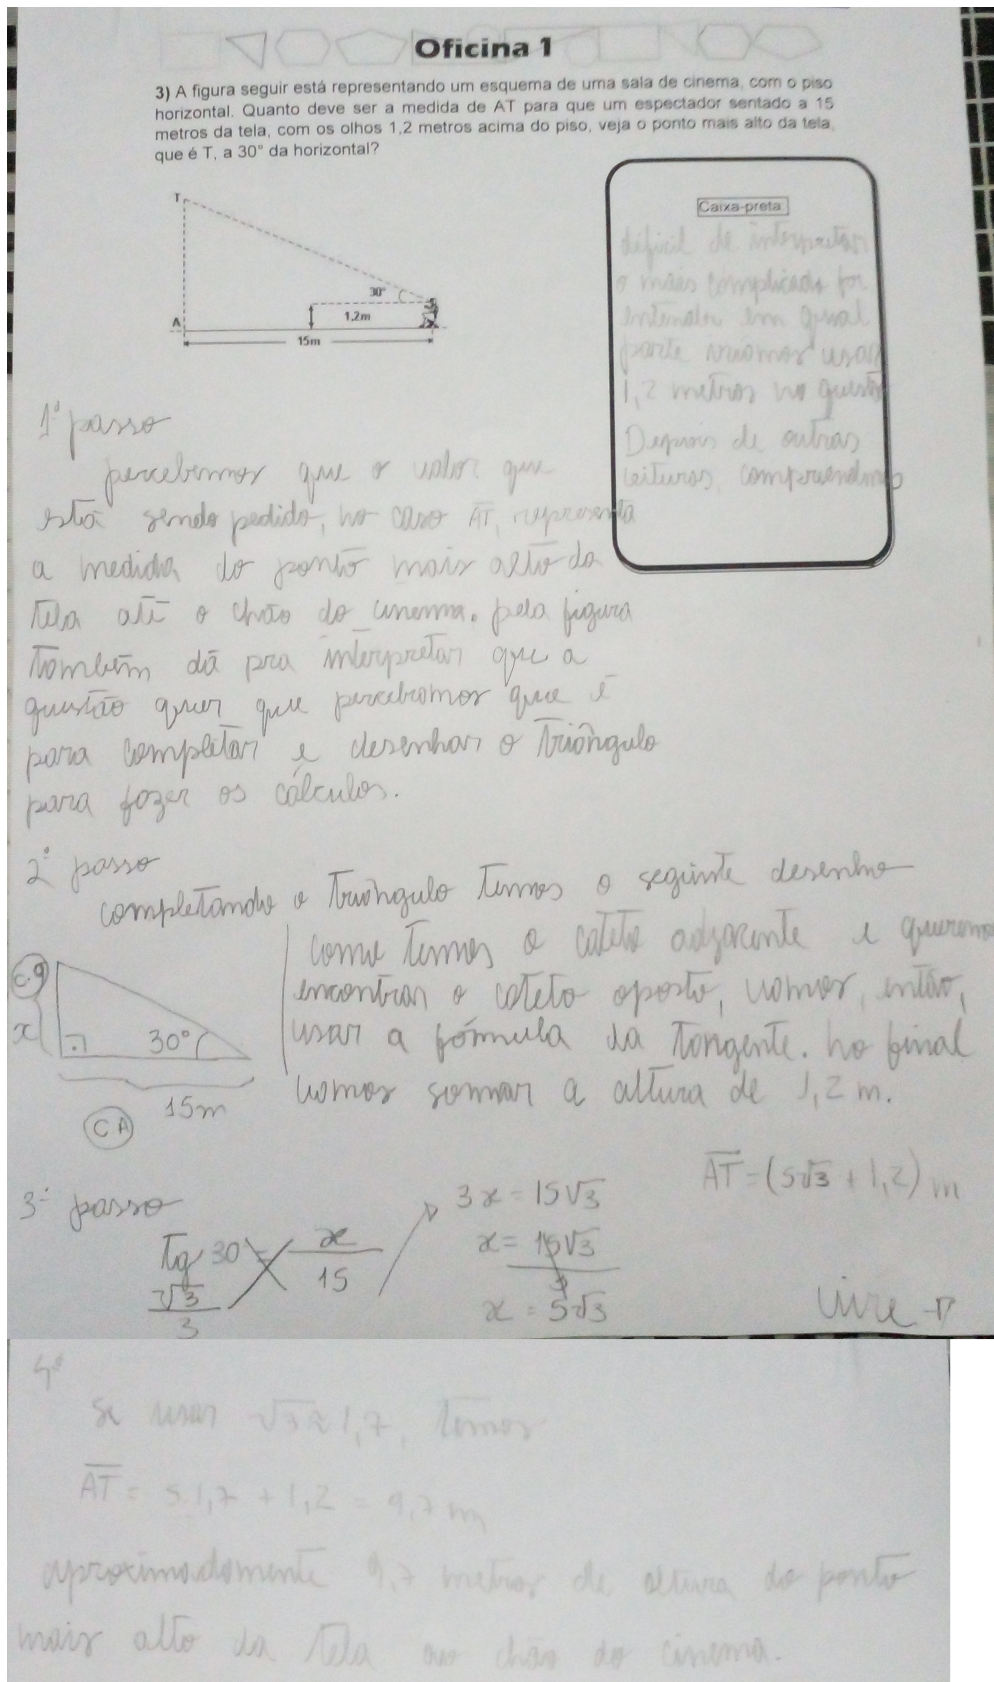 Oficina 1
3) A figura seguir está representando um esquema de uma sala de cinema, com o piso
horizontal. Quanto deve ser a medida de AT para que um espectador sentado a 15
metros da tela, com os olhos 1,2 metros acima do piso, veja o ponto mais alto da tela,
que é T, a 30° da horizontal?
T
30°
1,2m
A
15m
Caixa-preta:
dificil de interpretar
o mais complicado foi
entender em qual
parte iriamos usar
1,2 metros na questão
Depois de outras
leituras, compreendemos
1º passo
percebemos que o valor que
está sendo pedido, no caso AT, representa
a medida do ponto mais alto da
tela até o chão do cinema. pela figura
também dá pra interpretar que a
questão quer que percebamos que é
para completar e desenhar o triângulo
para fazer os cálculos.
2º passo
completando o triângulo temos o seguinte desenho
C.O
x
30°
15m
CA
como temos o cateto adjacente e queremos
encontrar o cateto oposto, vamos, então,
usar a fórmula da tangente. no final
vamos somar a altura de 1,2 m.
3º passo
tg 30 = x/15
√3/3
3x = 15√3
x = 15√3/3
x = 5√3
AT = (5√3 + 1,2) m
vire →
4º
se usar √3 ≈ 1,7, temos
AT = 5.1,7 + 1,2 = 9,7 m
aproximadamente 9,7 metros de altura do ponto
mais alto da tela ao chão do cinema.